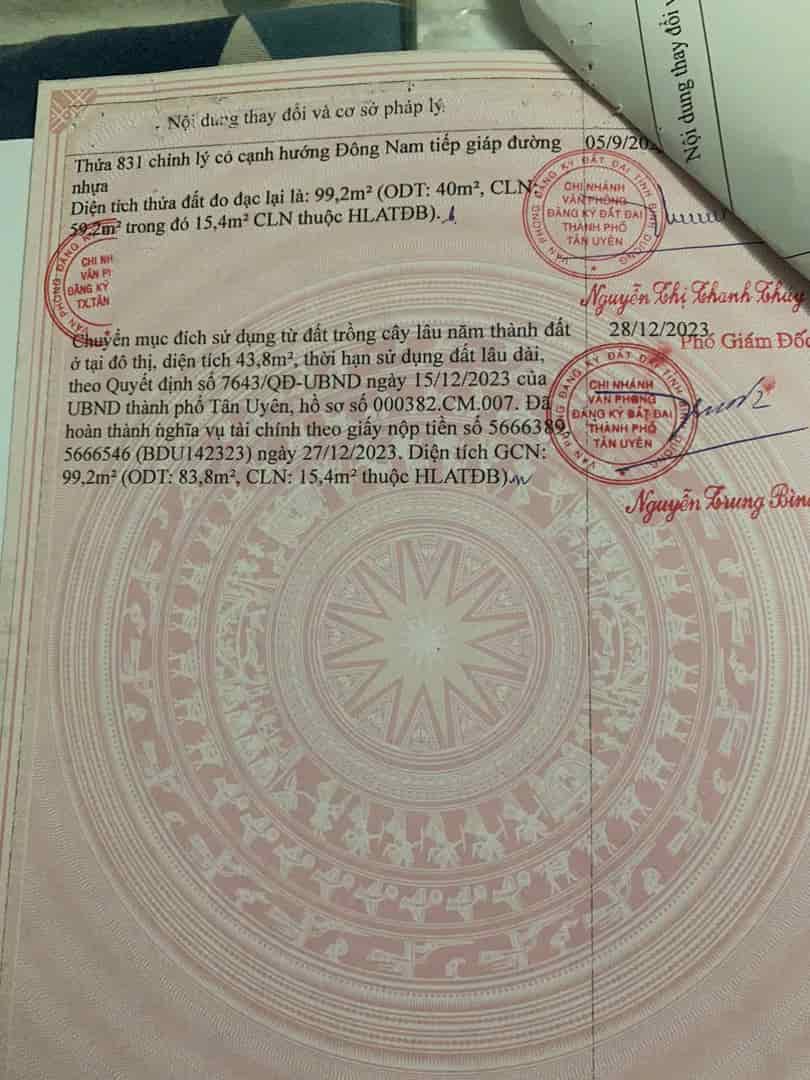 Nội dung thay đổi và cơ sở pháp lý
Nội dung thay đổi v
Thửa 831 chỉnh lý có cạnh hướng Đông Nam tiếp giáp đường
nhựa
Diện tích thửa đất đo đạc lại là: 99,2m² (ODT: 40m², CLN:
59,2m² trong đó 15,4m² CLN thuộc HLATĐB).
05/9/202
VĂN PHÒNG ĐĂNG KÝ ĐẤT ĐAI TỈNH BÌNH DƯƠNG
CHI NHÁNH
VĂN PHÒNG
ĐĂNG KÝ ĐẤT ĐAI
THÀNH PHỐ
TÂN UYÊN
Nguyễn Thị Thanh Thúy
VĂN PHÒNG ĐĂNG K
CHI NH
VĂN P
ĐĂNG KÝ
TX.TÂN
Chuyển mục đích sử dụng từ đất trồng cây lâu năm thành đất
ở tại đô thị, diện tích 43,8m², thời hạn sử dụng đất lâu dài,
theo Quyết định số 7643/QĐ-UBND ngày 15/12/2023 của
UBND thành phố Tân Uyên, hồ sơ số 000382.CM.007. Đã
hoàn thành nghĩa vụ tài chính theo giấy nộp tiền số 5666389,
5666546 (BDU142323) ngày 27/12/2023. Diện tích GCN:
99,2m² (ODT: 83,8m², CLN: 15,4m² thuộc HLATĐB)
28/12/2023
Phó Giám Đốc
VĂN PHÒNG ĐĂNG KÝ ĐẤT ĐAI TỈNH BÌNH DƯƠNG
CHI NHÁNH
VĂN PHÒNG
ĐĂNG KÝ ĐẤT ĐAI
THÀNH PHỐ
TÂN UYÊN
Nguyễn Trung Bìn